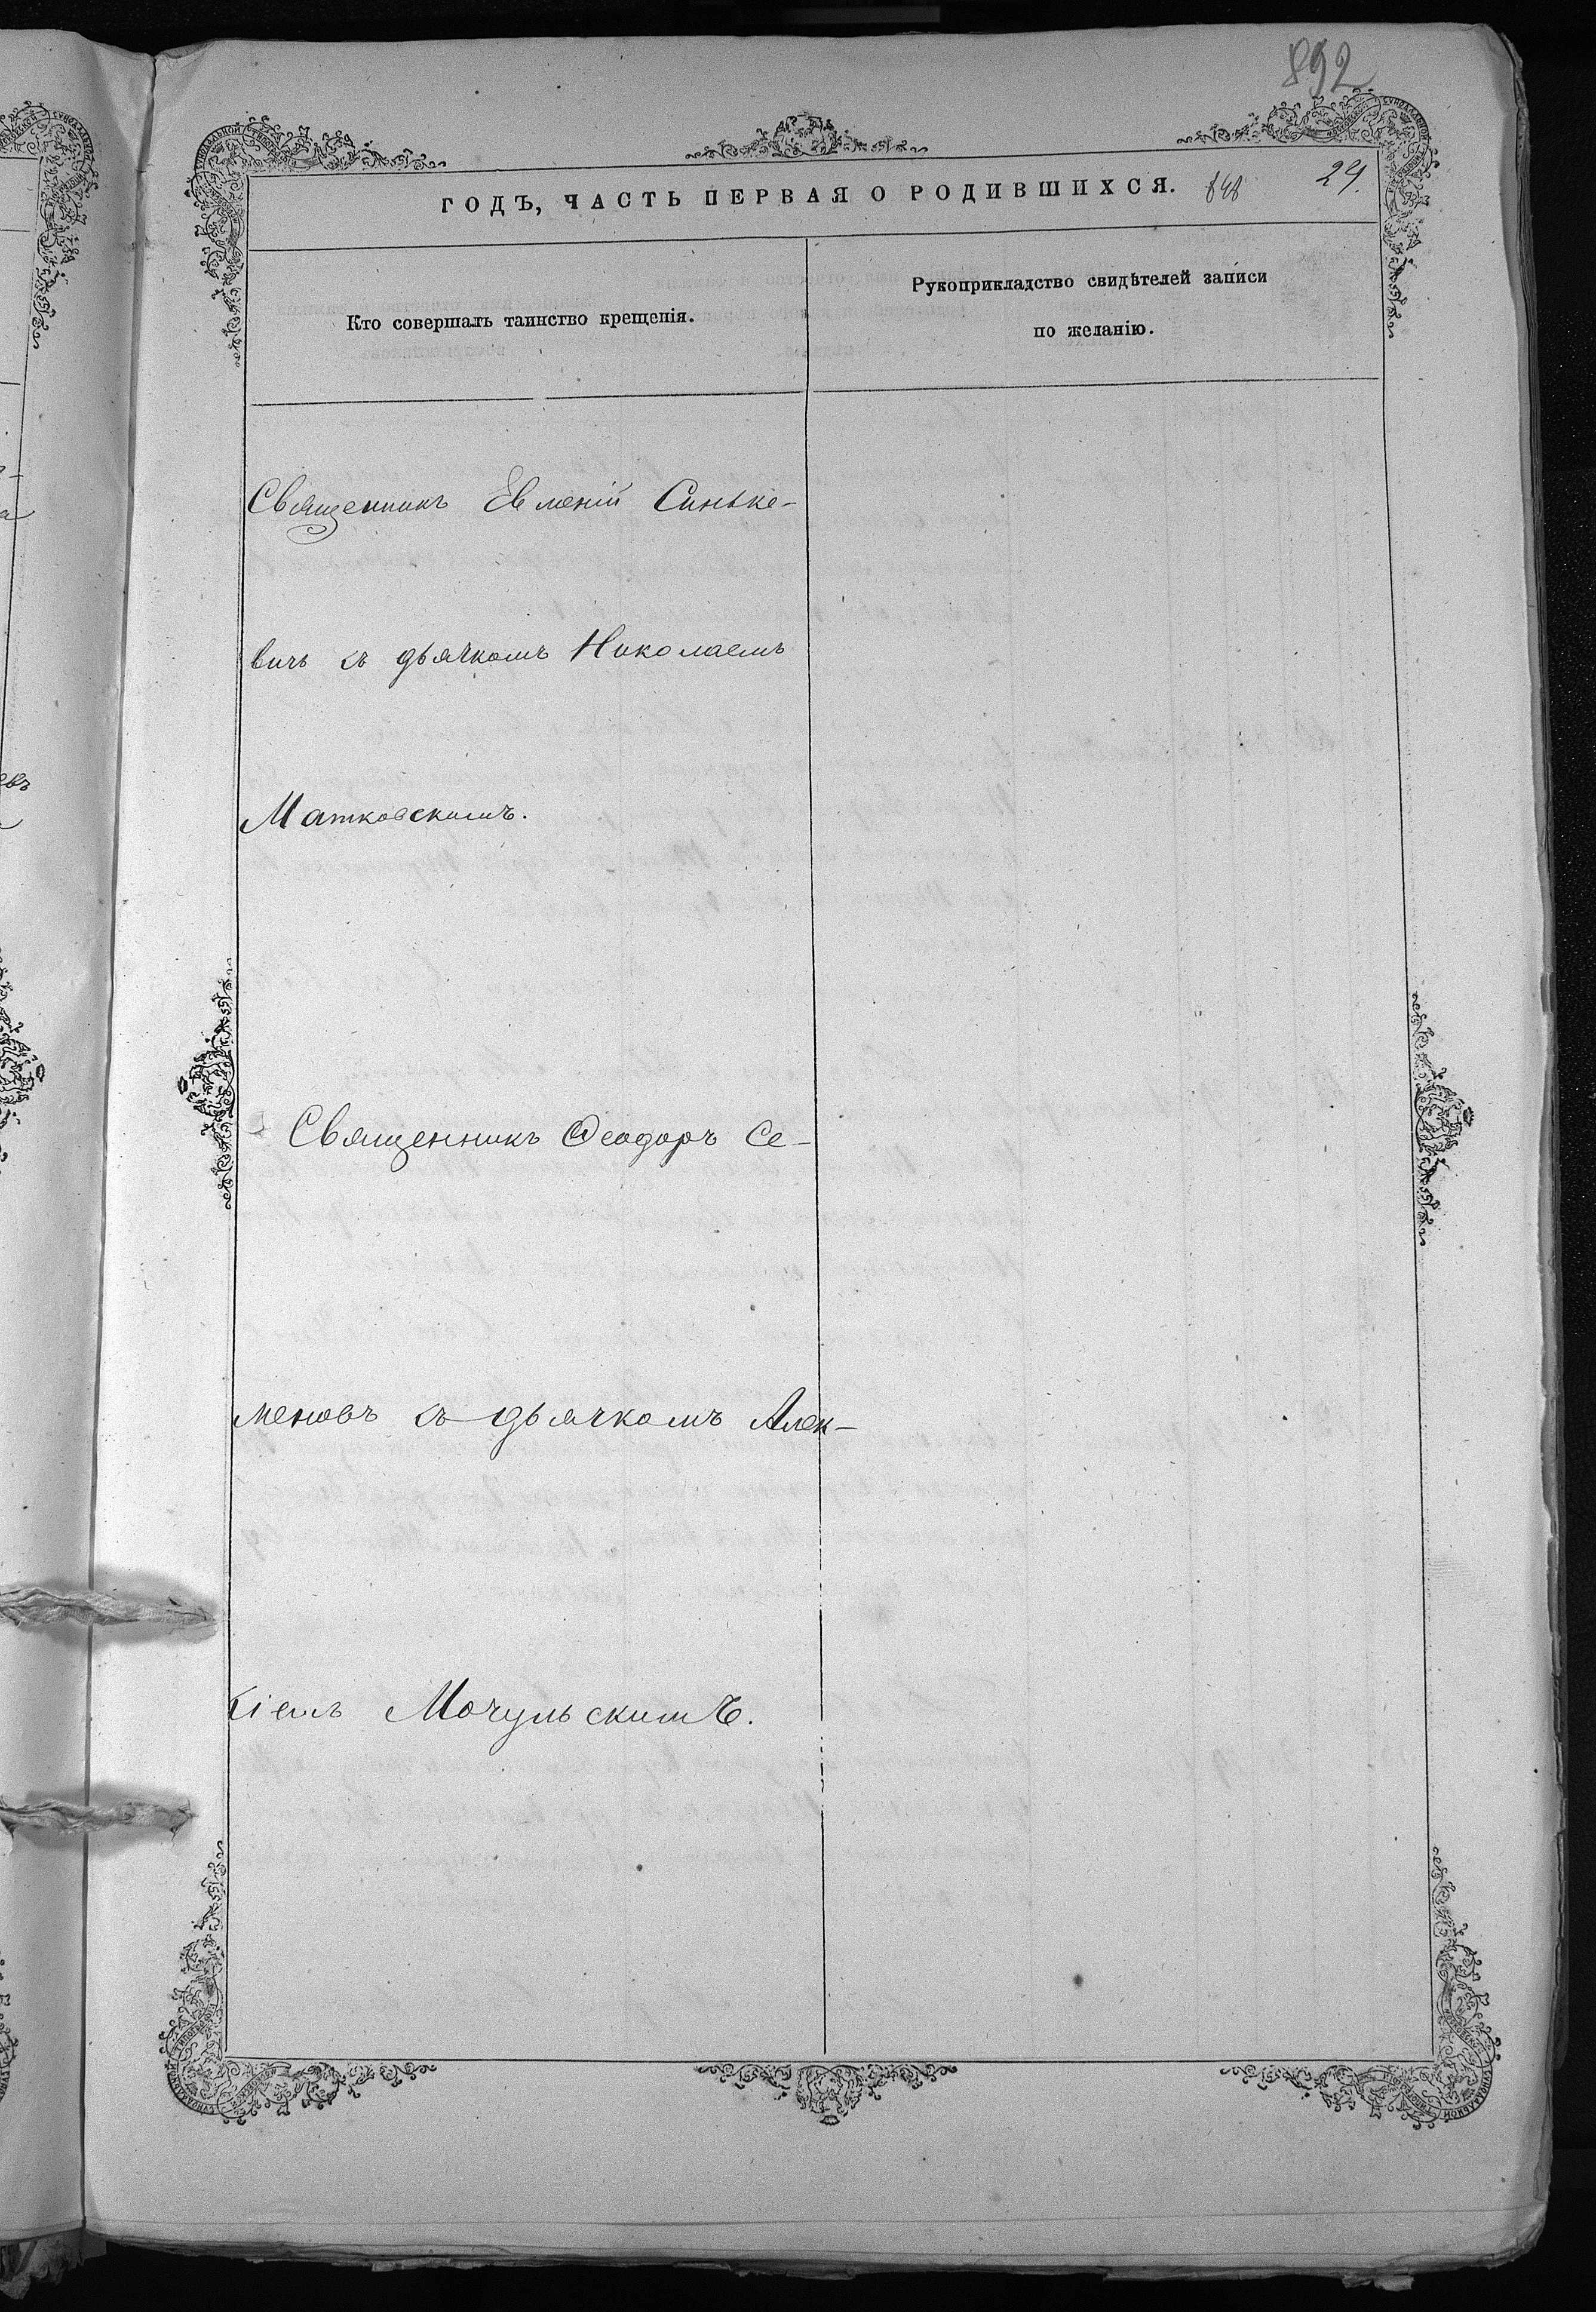 892
ГОДЪ, ЧАСТЬ ПЕРВАЯ О РОДИВШИХСЯ. 848 24.
Кто совершалъ таинство крещенія.
Рукоприкладство свидѣтелей записи
по желанію.
Священникъ Евменій Синьке-
вичъ съ дьячкомъ Николаемъ
Матковскимъ.
Священникъ Ѳеодоръ Се-
меновъ съ дьячкомъ Алек-
сіемъ Мочульскимъ.